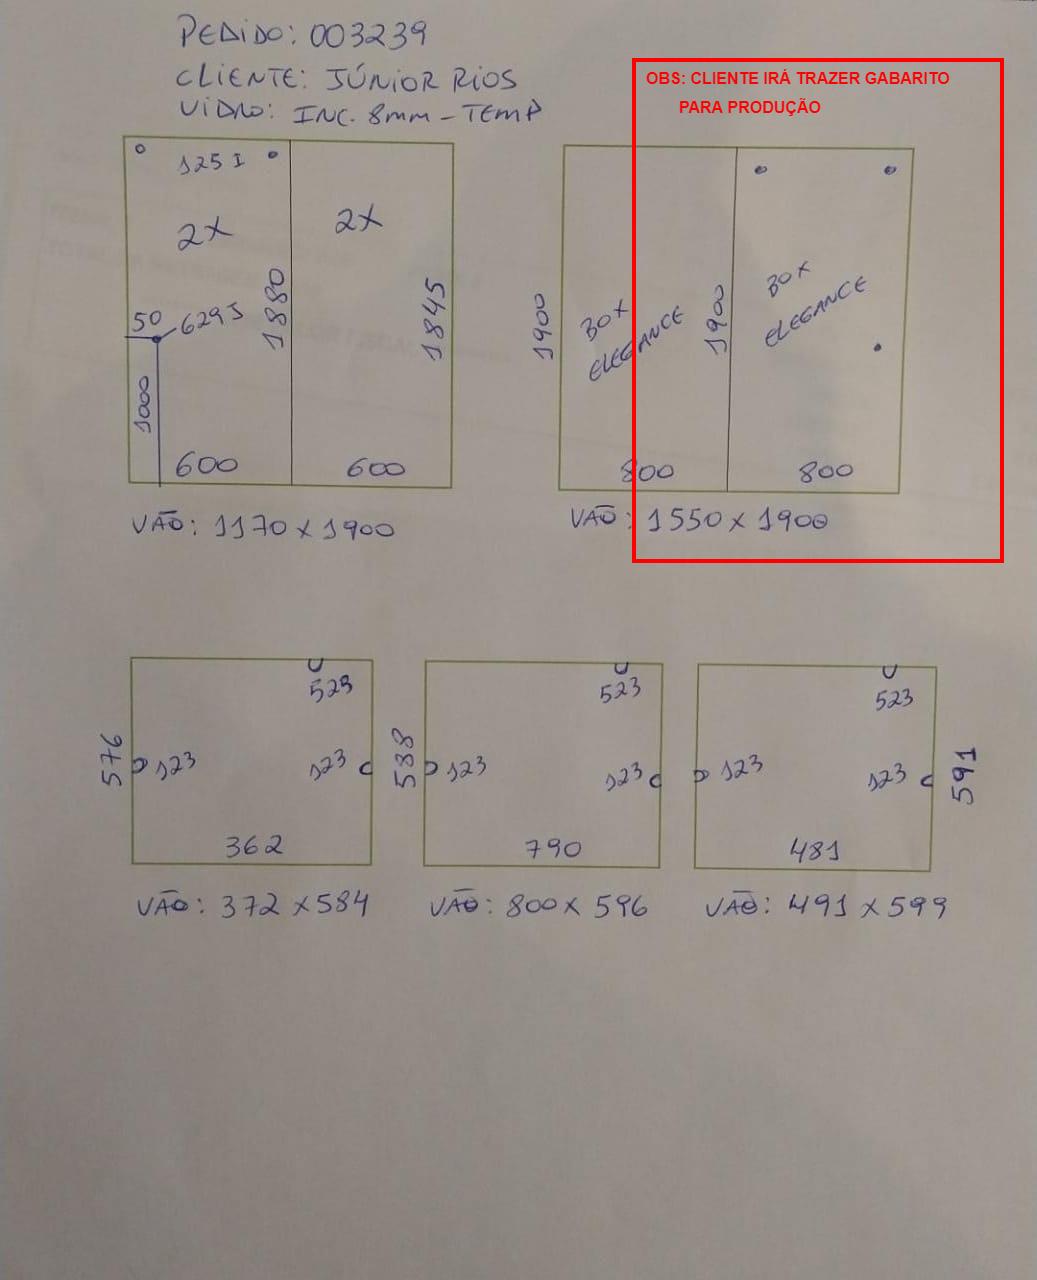 PEDIDO: 003239
CLIENTE: JÚNIOR RIOS
VIDRO: INC. 8mm - TEMP
OBS: CLIENTE IRÁ TRAZER GABARITO
PARA PRODUÇÃO
125 I
2X
2X
50
629J
1000
1880
1845
600
600
VÃO: 1170 X 1900
1900
30X
ELEGANCE
1900
30X
ELEGANCE
800
800
VÃO: 1550 X 1900
523
576
123
123
362
VÃO: 372 X 584
523
588
123
123
790
VÃO: 800 X 596
523
123
123
591
481
VÃO: 491 X 599